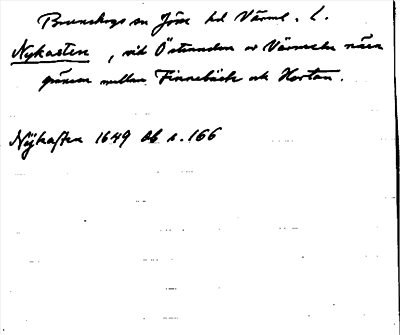 Brunskogs sn Jösse hd Värml. l.
Nykasten, vid Östmarken av Värmeln nära
gränsen mellan Finnebäck och Hortan.
Nykasten 1649 ob s. 166